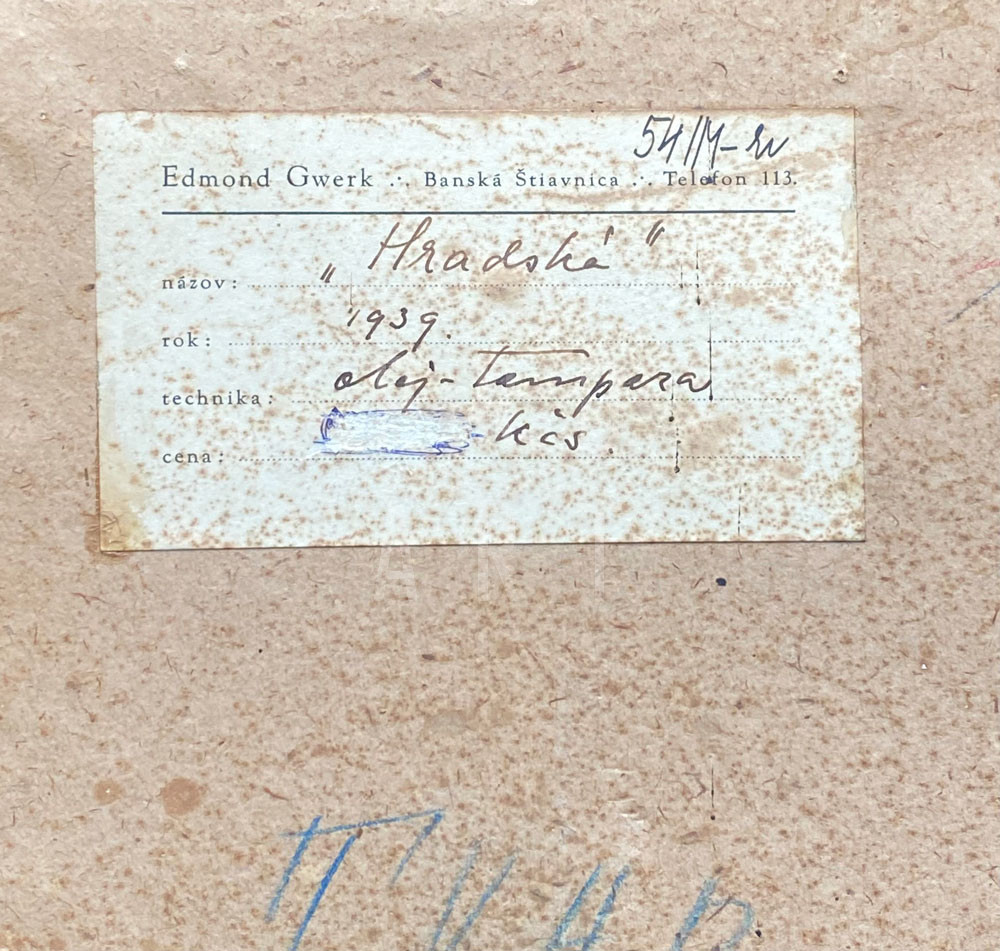 Edmond Gwerk .·. Banská Štiavnica .·. Telefon 113.
názov: „Hradská"
rok: 1939.
technika: olej-tempera
cena: - Kčs.